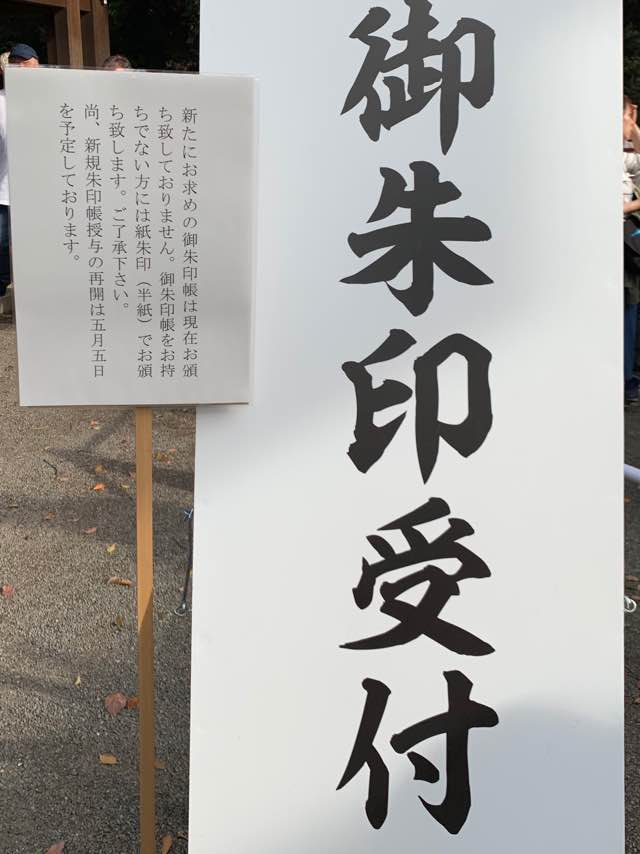 御朱印受付
新たにお求めの御朱印帳は現在お頒
ち致しておりません。御朱印帳をお持
ちでない方には紙朱印（半紙）でお頒
ち致します。ご了承下さい。
尚、新規朱印帳授与の再開は五月五日
を予定しております。